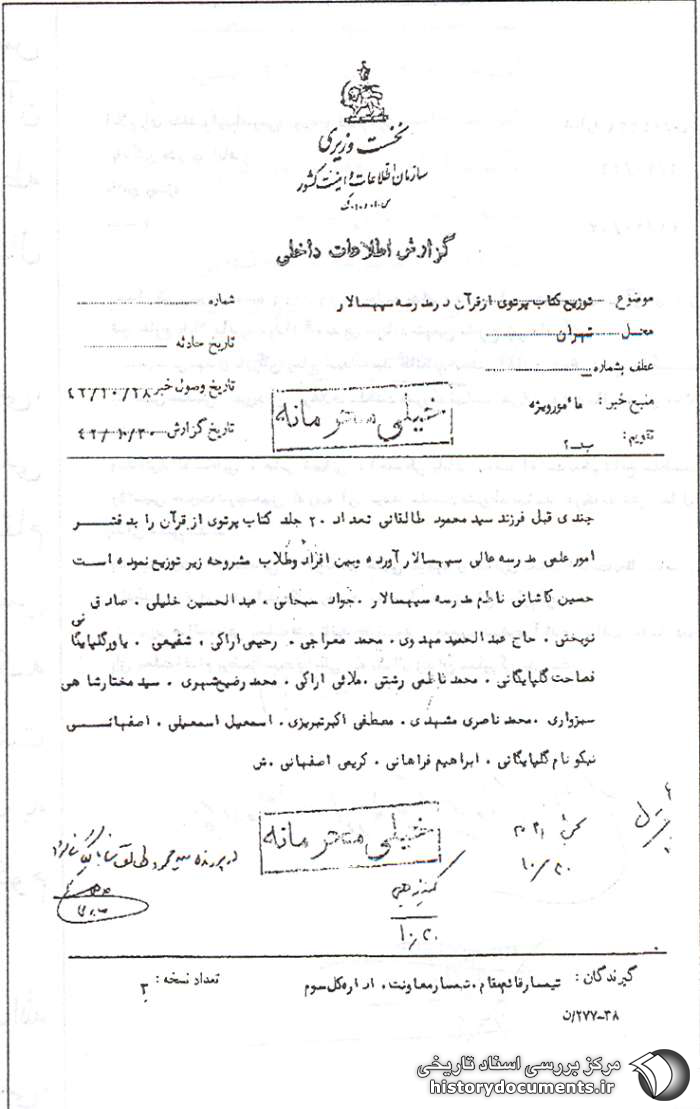 نخست وزیری
سازمان اطلاعات و امنیت کشور
س.ا.و.ا.ک
گزارش اطلاعات داخلی
موضوع توزیع کتاب پرتوی از قرآن در مدرسه سپهسالار
شماره
محل تهران
تاریخ حادثه
عطف بشماره
تاریخ وصول خبر ۴۲/۱۰/۲۸
منبع خبر: مأمور ویژه
خیلی محرمانه
تقویم: ب-۲
تاریخ گزارش ۴۲/۱۰/۳۰
چندی قبل فرزند سید محمود طالقانی تعداد ۲۰ جلد کتاب پرتوی از قرآن را بدفتر
امور علمی مدرسه عالی سپهسالار آورده وبین افراد وطلاب مشروحه زیر توزیع نموده است
حسین کاشانی ناظم مدرسه سپهسالار . جواد سبحانی . عبدالحسین خلیلی . صادق
نوبختی . حاج عبدالحمید مهدوی . محمد معراجی . رحیمی اراکی . شفیعی . یاور گلپایگانی
فصاحت گلپایگانی . محمد ناطقی رشتی . ملائی اراکی . محمد رضی شهری . سید مختار شاهی
سبزواری . محمد ناصری مشهدی . مصطفی اکبر تبریزی . اسمعیل اسمعیلی . اصفهانی
نیکو نام گلپایگانی . ابراهیم فراهانی . کریمی اصفهانی . ش
خیلی محرمانه
در پرونده سید محمود طالقانی
۱۰/۳۰
۱۰/۳۰
گیرندگان: تیمسار قائم مقام . تیمسار معاونت . اداره کل سوم
تعداد نسخه: ۳
۲۷۷-۳۸/ن
مرکز بررسی اسناد تاریخی
historydocuments.ir